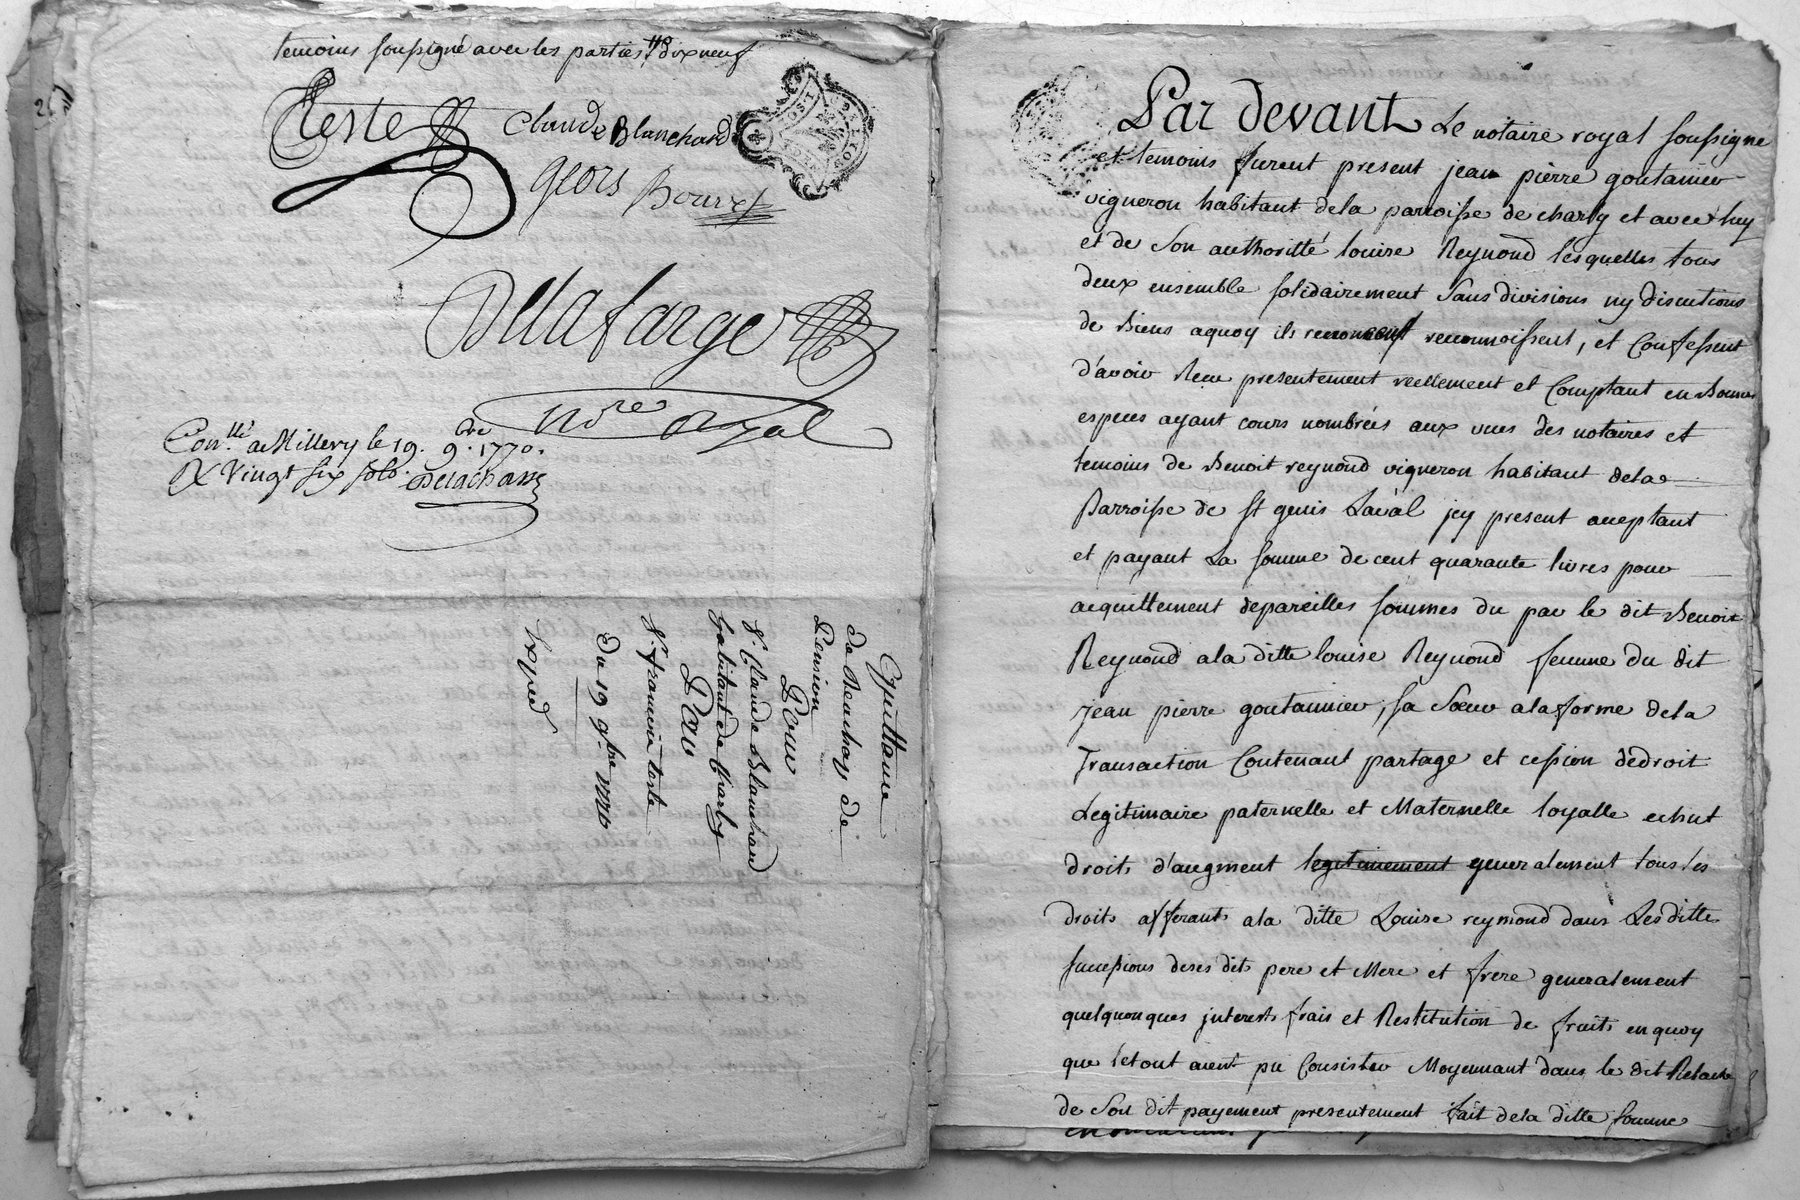 temoins soussigné avec les parties dix neuf
teste
Claude Blanchard
geors Bouret
Dellafarge
n.re royal
Con.llé a Millery le 19. 9.bre 1770.
R vingt six sols. Delachass
Quittance
de Reachay de
Pension
Pour
S.r Claude Blanchard
habitant de Charly
Par
S.r francois teste
du 19 9bre 1770
Exped
Par devant Le notaire royal soussigne
et temoins furent present jean pierre goutanier
vigneron habitant dela parroisse de charly et avec luy
et de Son authoritté louise Reynond lesquelles tous
deux ensemble solidairement Sans divisions ny discutions
de biens aquoy ils renoncent reconnoissent, et Confessent
d'avoir Receu presentement reellement et Comptant en bonnes
especes ayant cours nombrées aux vues des notaires et
temoins de Benoit reynond vigneron habitant dela
Parroisse de st genis Laval jcy present aceptant
et payant La somme de cent quarante livres pour
acquittement depareilles sommes du par le dit Benoit
Reynond ala ditte louise Reynond femme du dit
jean pierre goutannier, sa Sœur ala forme dela
Transaction Contenant partage et cession dedroit
Legitimaire paternelle et Maternelle loyalle echut
droits d'augment legitimement generalement tous les
droits afferants ala ditte Louise reymond dans Lesditte
successions deses dits pere et Mere et frere generalement
quelquonques jnterets frais et Restitution de fruits enquoy
que letout aient pu Consister Moyennant dans le dit Relache
de Son dit payement presentement fait dela ditte somme